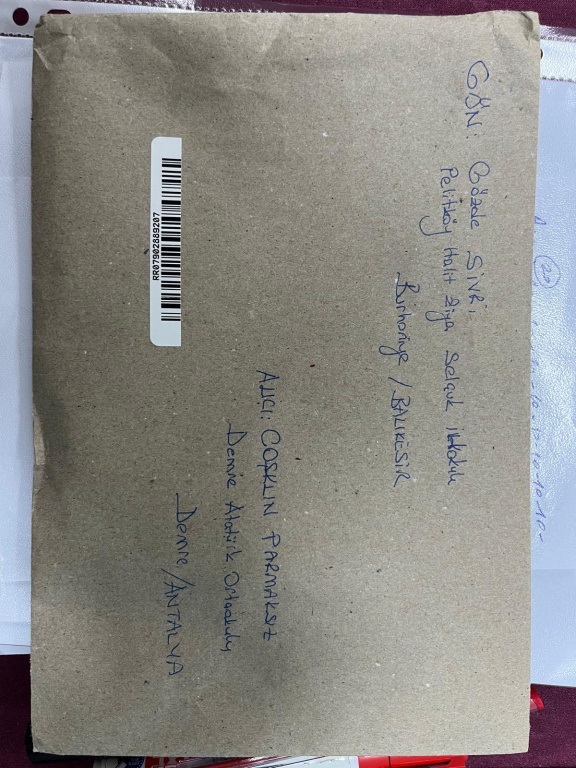 GÖN: Gözde SİVRİ
Pelitköy Halit Ziya Selçuk ilkokulu
Burhaniye / BALIKESİR
RR07902889207
ALICI: COŞKUN PARMAKSIZ
Demre Atatürk Ortaokulu
Demre/ANTALYA